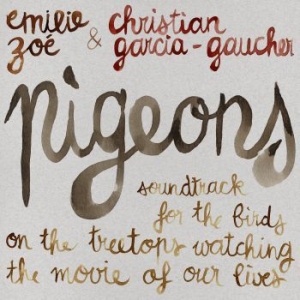 emilie christian
zoé & garcia-gaucher
pigeons
soundtrack
for the birds
on the treetops watching
the movie of our lives